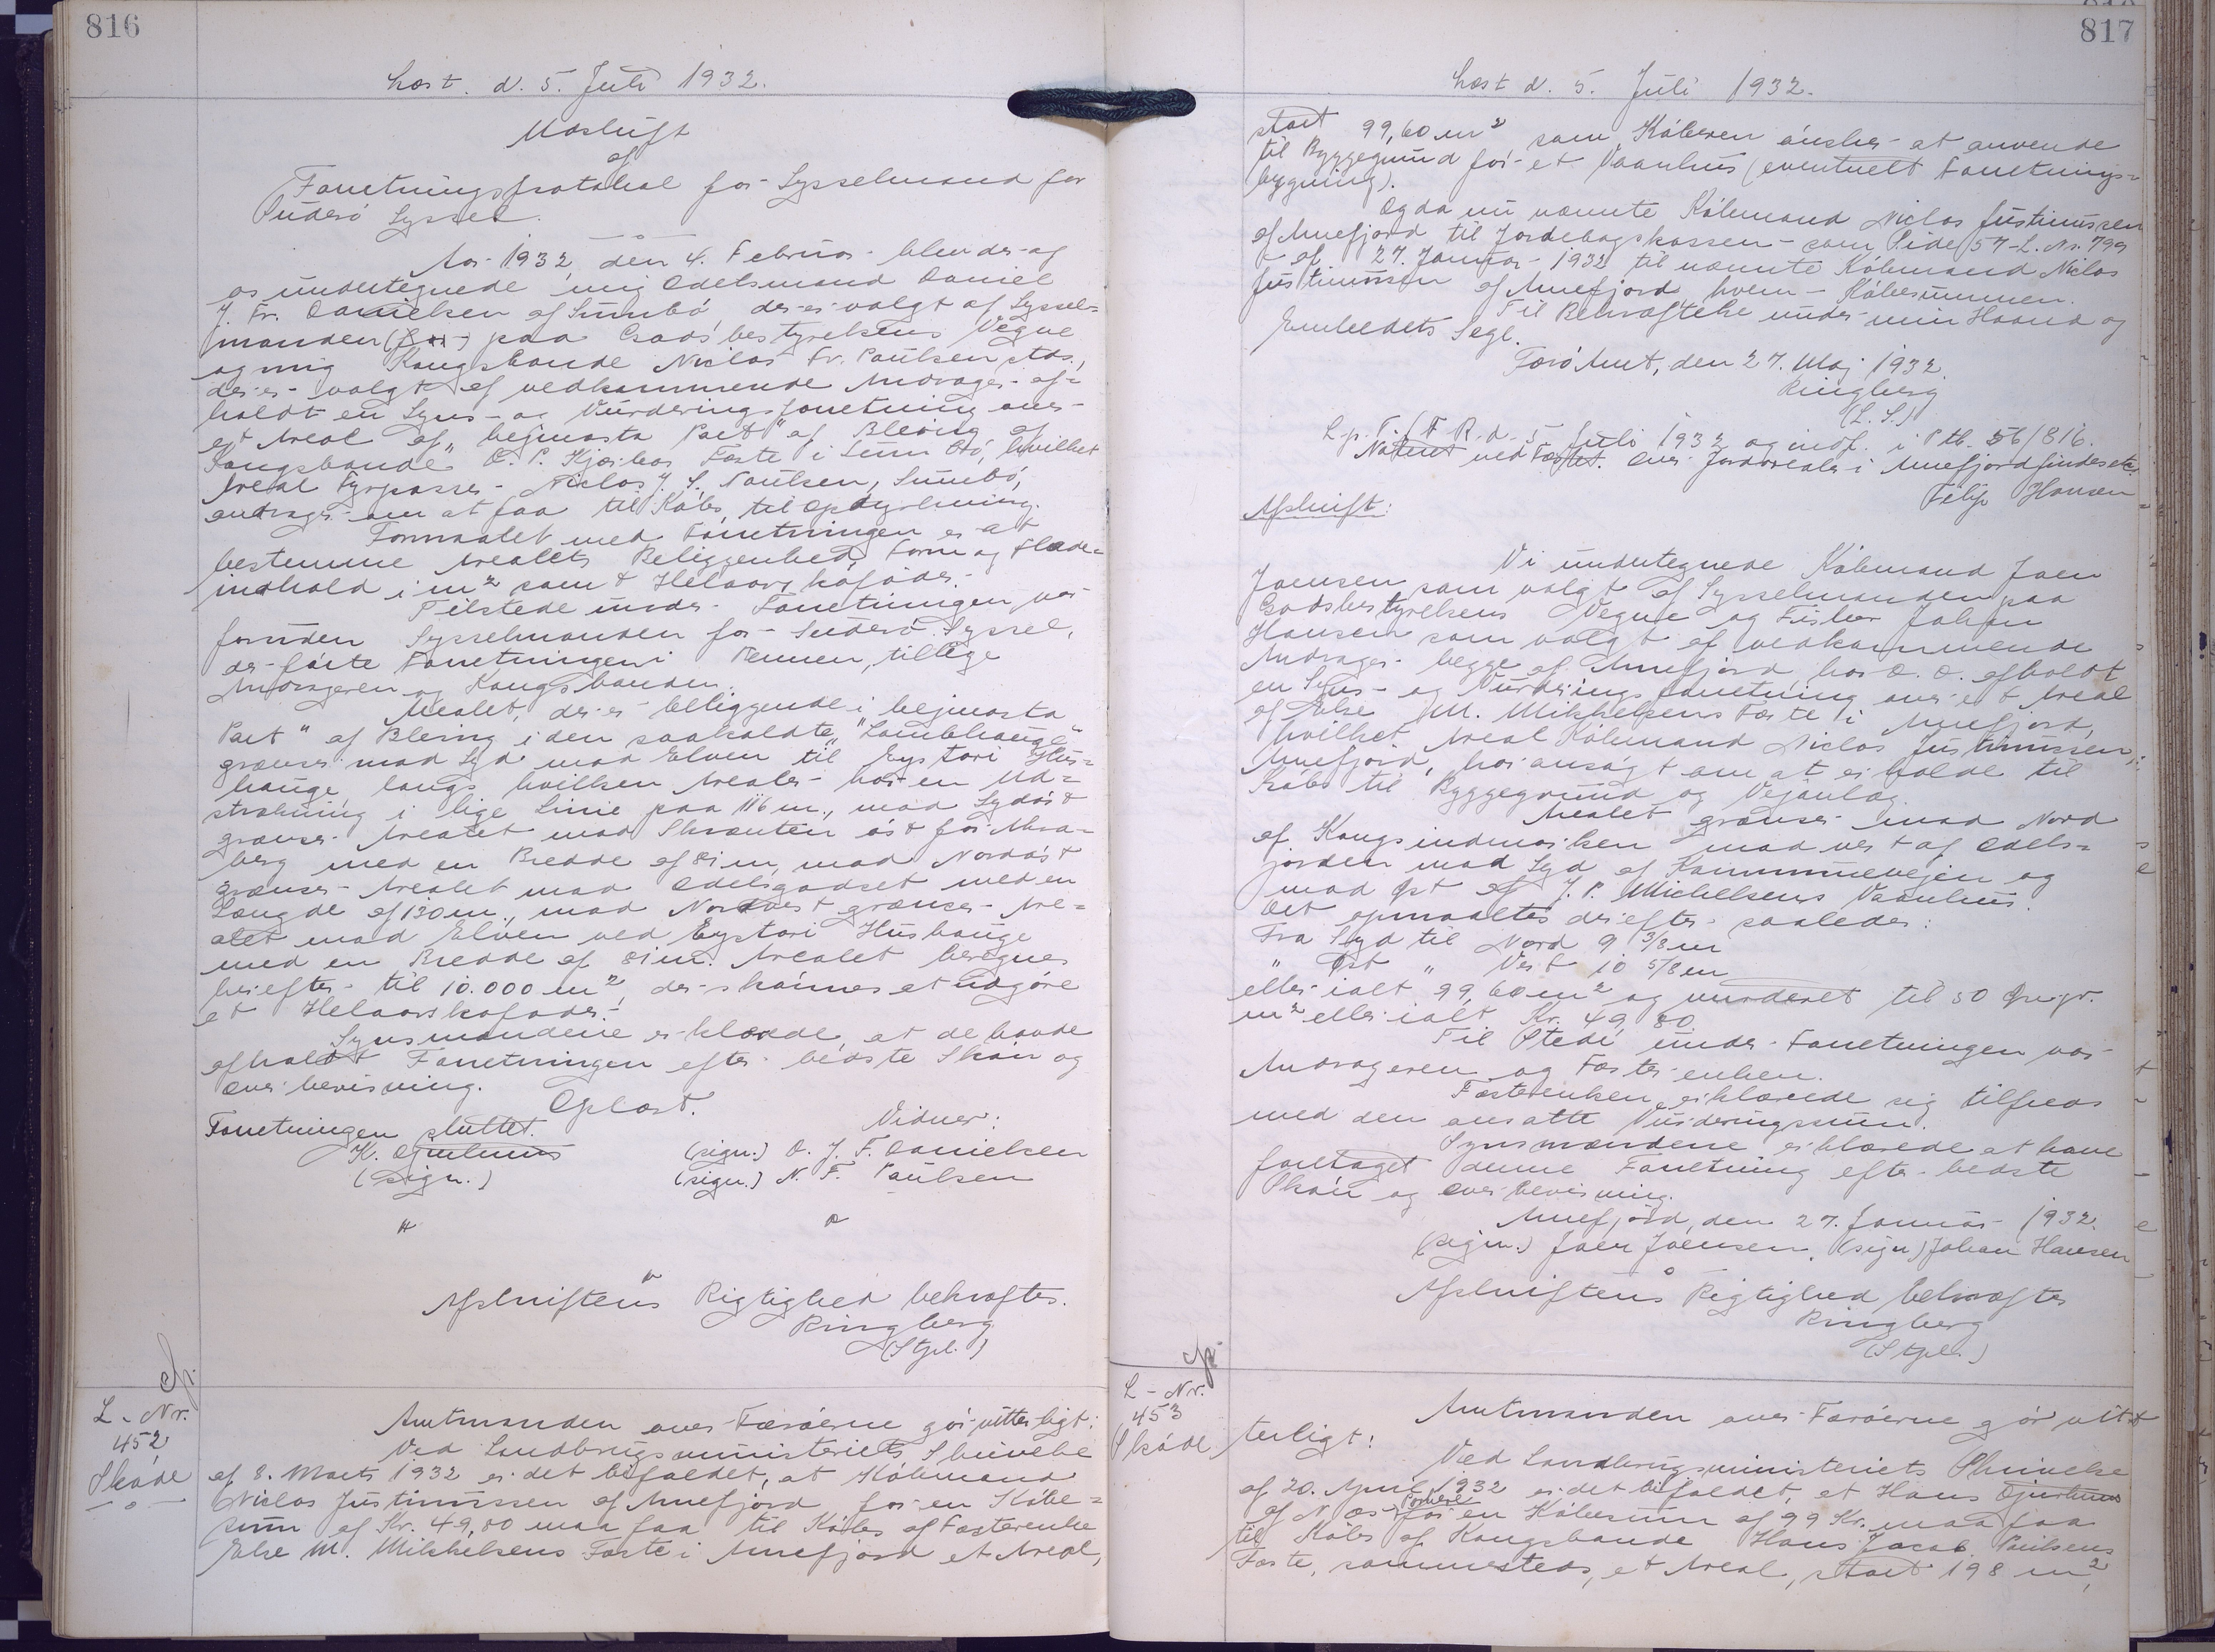 816
Læst. d. 5. Juli 1932.
Udskrift
af
Forretningsprotokol for Sysselmand for
Suderø Syssel.
Aar 1932, den 4. Februar blev der af
os undertegnede mig Odelsmand Daniel
J. Fr. Danielsen af Sumbø, der er valgt af Syssel-
manden paa Godsbestyrelsens Vegne
og mig Kongsbonde Niclas Fr. Paulsen stds.,
der er valgt af vedkommende Andrager af-
holdt en Syns- og Vurderingsforretning over
et Areal af "bejmasta Part" af Bleing af
Kongsbonde D. P. Kjærbos Fæste i Sumbø, hvilket
Areal Fyrpasser Niclas J. S. Poulsen, Sumbø,
andrager om at faa til Købs til Opdyrkning.
Formaalet med Forretningen er at
bestemme Arealets Beliggenhed, Form og Flade-
indhold i m² samt Helaarskofoder.
Tilstede under Forretningen var
foruden Sysselmanden for Suderø Syssel,
der førte Forretningen i Pennen, tillige
Andrageren og Kongsbonden.
Arealet, der er beliggende i bejmasta
Part" af Bleing i den saakaldte "Lambhauge"
grænser mod Syd mod Elven til Eystari Hús-
hauge langs hvilken Arealet har en Ud-
strækning i lige Linie paa 116 m., mod Sydøst
grænser Arealet mod Skrænten øst for Akra-
berg med en Bredde af 81 m, mod Nordøst
grænser Arealet mod Odelsgodset med en
Længde af 130 m., mod Nordvest grænser Are-
alet mod Elven ved Eystari Húshauge
med en Bredde af 81 m. Arealet beregnes
herefter til 10.000 m², der skønnes at udgøre
et Helaarskofoder.
Synsmændene erklærede, at de havde
afholdt Forretningen efter bedste Skøn og
Overbevisning.
Oplæst.
Forretningen sluttet. Vidner:
K. Djurhuus (sign.) D. J. F. Danielsen
(sign.) (sign.) N. F. Paulsen
Afskriftens Rigtighed bekræftes.
Ringberg
(Stpl.)
L-Nr.
452
Skøde
Amtmanden over Færøerne gør vitterligt:
Ved Landbrugsministeriets Skrivelse
af 8. Marts 1932 er det bifaldet, at Købmand
Niclas Justinussen af Arnefjord for en Købe-
sum af Kr. 49,80 maa faa til Købs af Fæsterenke
Else M. Mikkelsens Fæste i Arnefjord et Areal,
817
Læst d. 5. Juli 1932.
stort 99,60 m² som Køberen ønsker at anvende
til Byggegrund for et Vaanhus (eventuelt Forretnings-
bygning).
Og da nu nævnte Købmand Niclas Justinussen
af Arnefjord til Jordebogskassen - som Side 57 - L. Nr. 799
af 27. Januar 1932 til nævnte Købmand Niclas
Justinussen af Arnefjord hvem - Købesummen.
Til Bekræftelse under min Haand og
Embedets Segl.
Færø Amt, den 27. Maj 1932.
Ringberg
(L. S.)
L. p. T. f. F. R. d. 5 Juli 1932 og indf. i Ptk. 56/816.
Noteret ved Fæstet. Over Jordarealer i Arnefjord findes etc.
Felix Hansen
Afskrift:
Vi undertegnede Købmand Joen
Joensen som valgt af Sysselmanden paa
Godsbestyrelsens Vegne og Fisker Johan
Hansen som valgt af vedkommende
Andrager begge af Arnefjord, har D. D. afholdt
en Syns- og Vurderingsforretning over et Areal
af Else M. Mikkelsens Fæste i Arnefjord,
hvilket Areal Købmand Niclas Justinussen,
Arnefjord, har ansøgt om at erholde til
Købs til Byggegrund og Vejanlæg.
Arealet grænser mod Nord
af Kongsindmarken mod vest af Odels-
jorden mod Syd af Kommunevejen og
mod Øst af J. P. Michelsens Vaanhus.
Det opmaaltes derefter saaledes:
Fra Syd til Nord 9 3/8 m
" Øst " Vest 10 5/8 m
eller ialt 99,60 m² og vurderet til 50 Øre pr.
m² eller ialt Kr. 49,80.
Til Stede under Forretningen var
Andrageren og Fæsterenken.
Fæsterenken erklærede sig tilfreds
med den ansatte Vurderingssum.
Synsmændene erklærede at have
foretaget denne Forretning efter bedste
Skøn og Overbevisning.
Arnefjord, den 27. Januar 1932.
(sign.) Joen Joensen. (sign) Johan Hansen
Afskriftens Rigtighed bekræftes
Ringberg
(Stpl.)
L-Nr.
453
Skøde
Amtmanden over Færøerne gør vit-
terligt:
Ved Landbrugsministeriets Skrivelse
af 20. April 1932 er det bifaldet, at Hans Djurhuus
af Næs for en Købesum af 99 Kr. maa faa
til Købs af Kongsbonde Hans Jacob Poulsens
Fæste, sammesteds, et Areal, stort 198 m²,